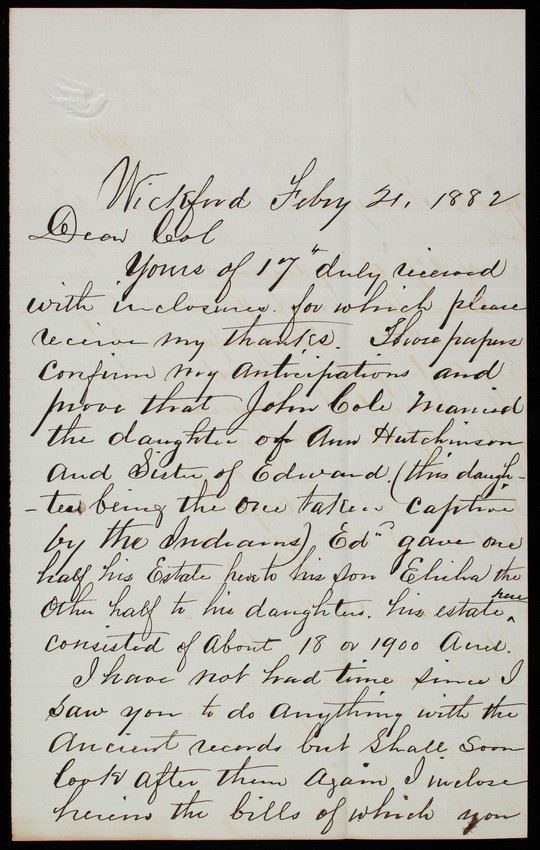 Wickford Feby 21, 1882
Dear Col
Yours of 17th duly received
with inclosures. for which please
receive my thanks. Those papers
confirm my anticipations and
prove that John Cole Married
the daughter of Ann Hutchinson
and Sister of Edward. (this daugh-
-ter being the one taken captive
by the Indians) Edwd gave one
half his Estate here to his son Elisha the
other half to his daughters. his estate ^here
consisted of about 18 or 1900 Acres.
I have not had time since I
saw you to do anything with the
Ancient records but shall soon
look after them again I inclose
herein the bills of which you